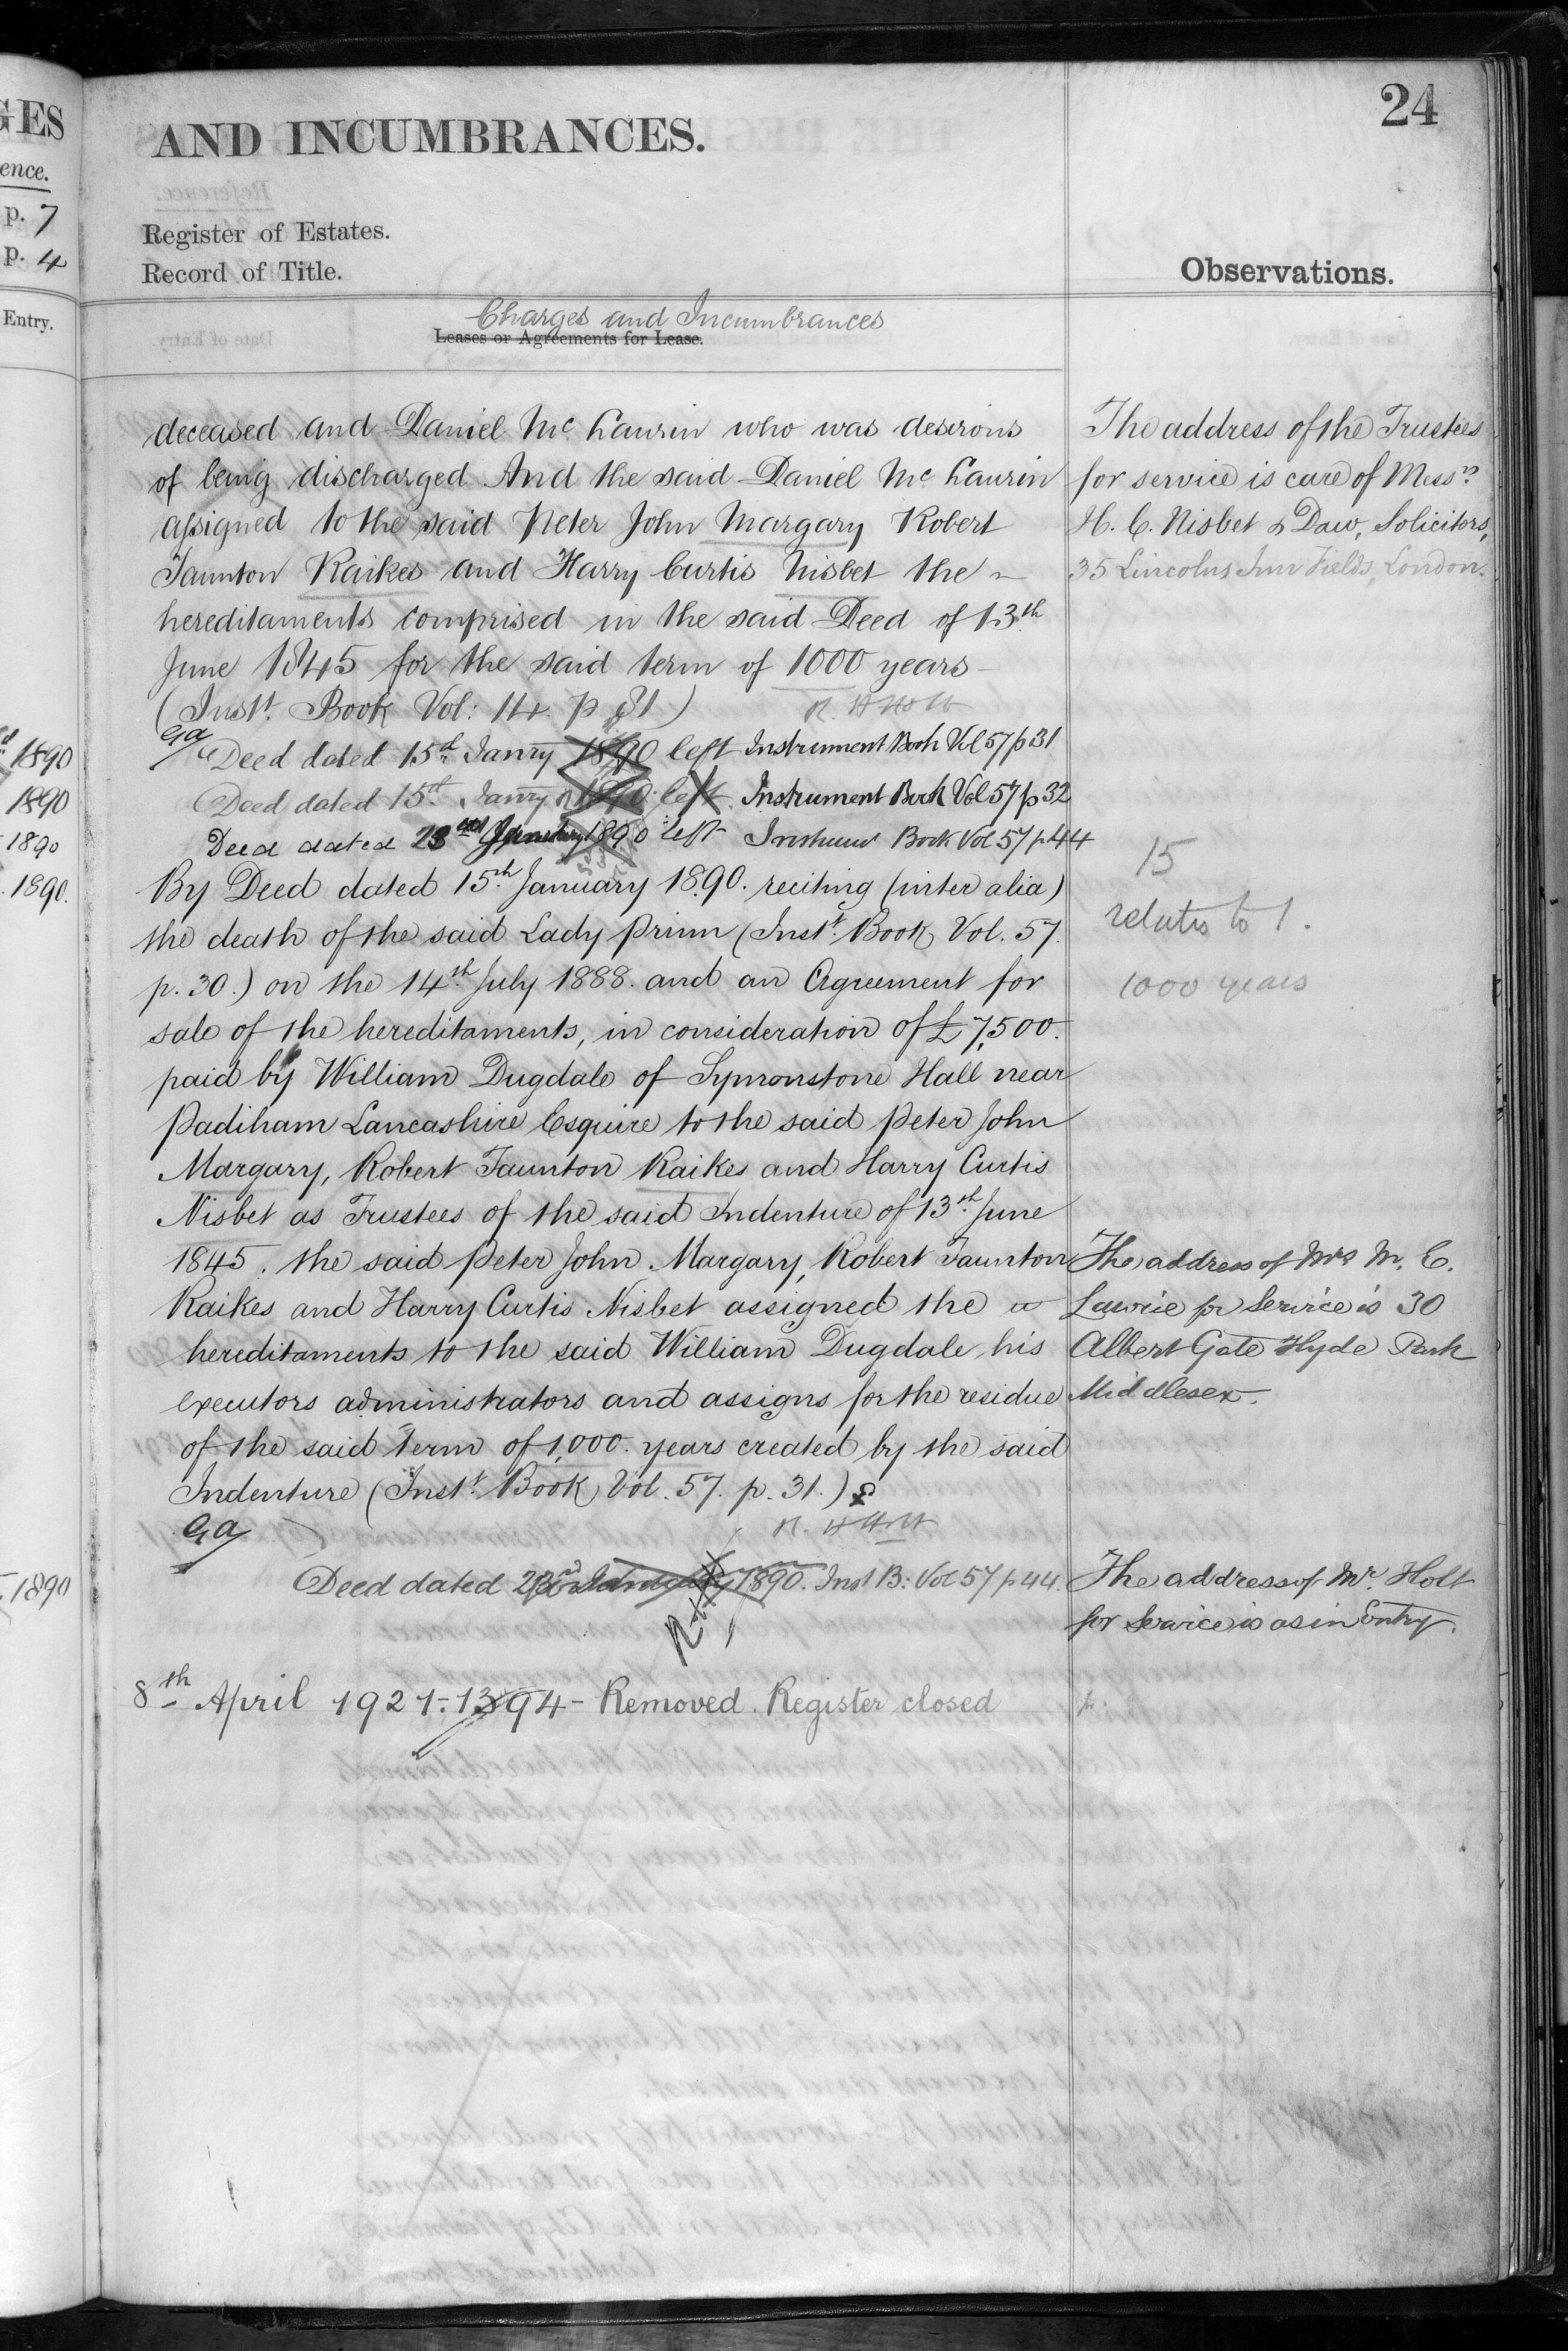 GES
ence.
p. 7
p. 4
Entry.
1890
1890
1890
1890.
1890
24
AND INCUMBRANCES.
Register of Estates.
Record of Title.
Observations.
Charges and Incumbrances
Leases or Agreements for Lease.
deceased and Daniel Mc Laurin who was desirous
of being discharged And the said Daniel Mc Laurin
assigned to the said Peter John Margary Robert
Taunton Raikes and Harry Curtis Nisbet the
hereditaments comprised in the said Deed of 13th
June 1845 for the said term of 1000 years
(Inst. Book Vol: 14. p 81)
Deed dated 15th Janry 1890 left Instrument Book Vol 57 p 31
Deed dated 15th Janry 1890 left Instrument Book Vol 57 p 32
Deed dated 23rd January 1890 left Instrumt Book Vol 57 p 44
By Deed dated 15th January 1890. reciting (inter alia)
the death of the said Lady Prinn (Inst. Book Vol. 57.
p. 30.) on the 14th July 1888. and an Agreement for
sale of the hereditaments, in consideration of £7,500.
paid by William Dugdale of Symonstone Hall near
Padiham Lancashire Esquire to the said Peter John
Margary, Robert Taunton Raikes and Harry Curtis
Nisbet as Trustees of the said Indenture of 13th June
1845. the said Peter John Margary, Robert Taunton
Raikes and Harry Curtis Nisbet assigned the
hereditaments to the said William Dugdale his
executors administrators and assigns for the residue
of the said term of 1,000. years created by the said
Indenture (Inst. Book Vol. 57. p. 31.)
Deed dated 23rd January 1890. Inst B: Vol 57 p 44.
8th April 1921.-1394- Removed. Register closed
The address of the Trustees
for service is care of Messrs
H. C. Nisbet & Daw, Solicitors,
35 Lincolns Inn Fields, London.
15
relates to 1.
1000 years
The address of Mrs M. C.
Lawrie for Service is 30
Albert Gate Hyde Park
Middlesex.
The address of Mr. Holt
for Service is as in Entry.